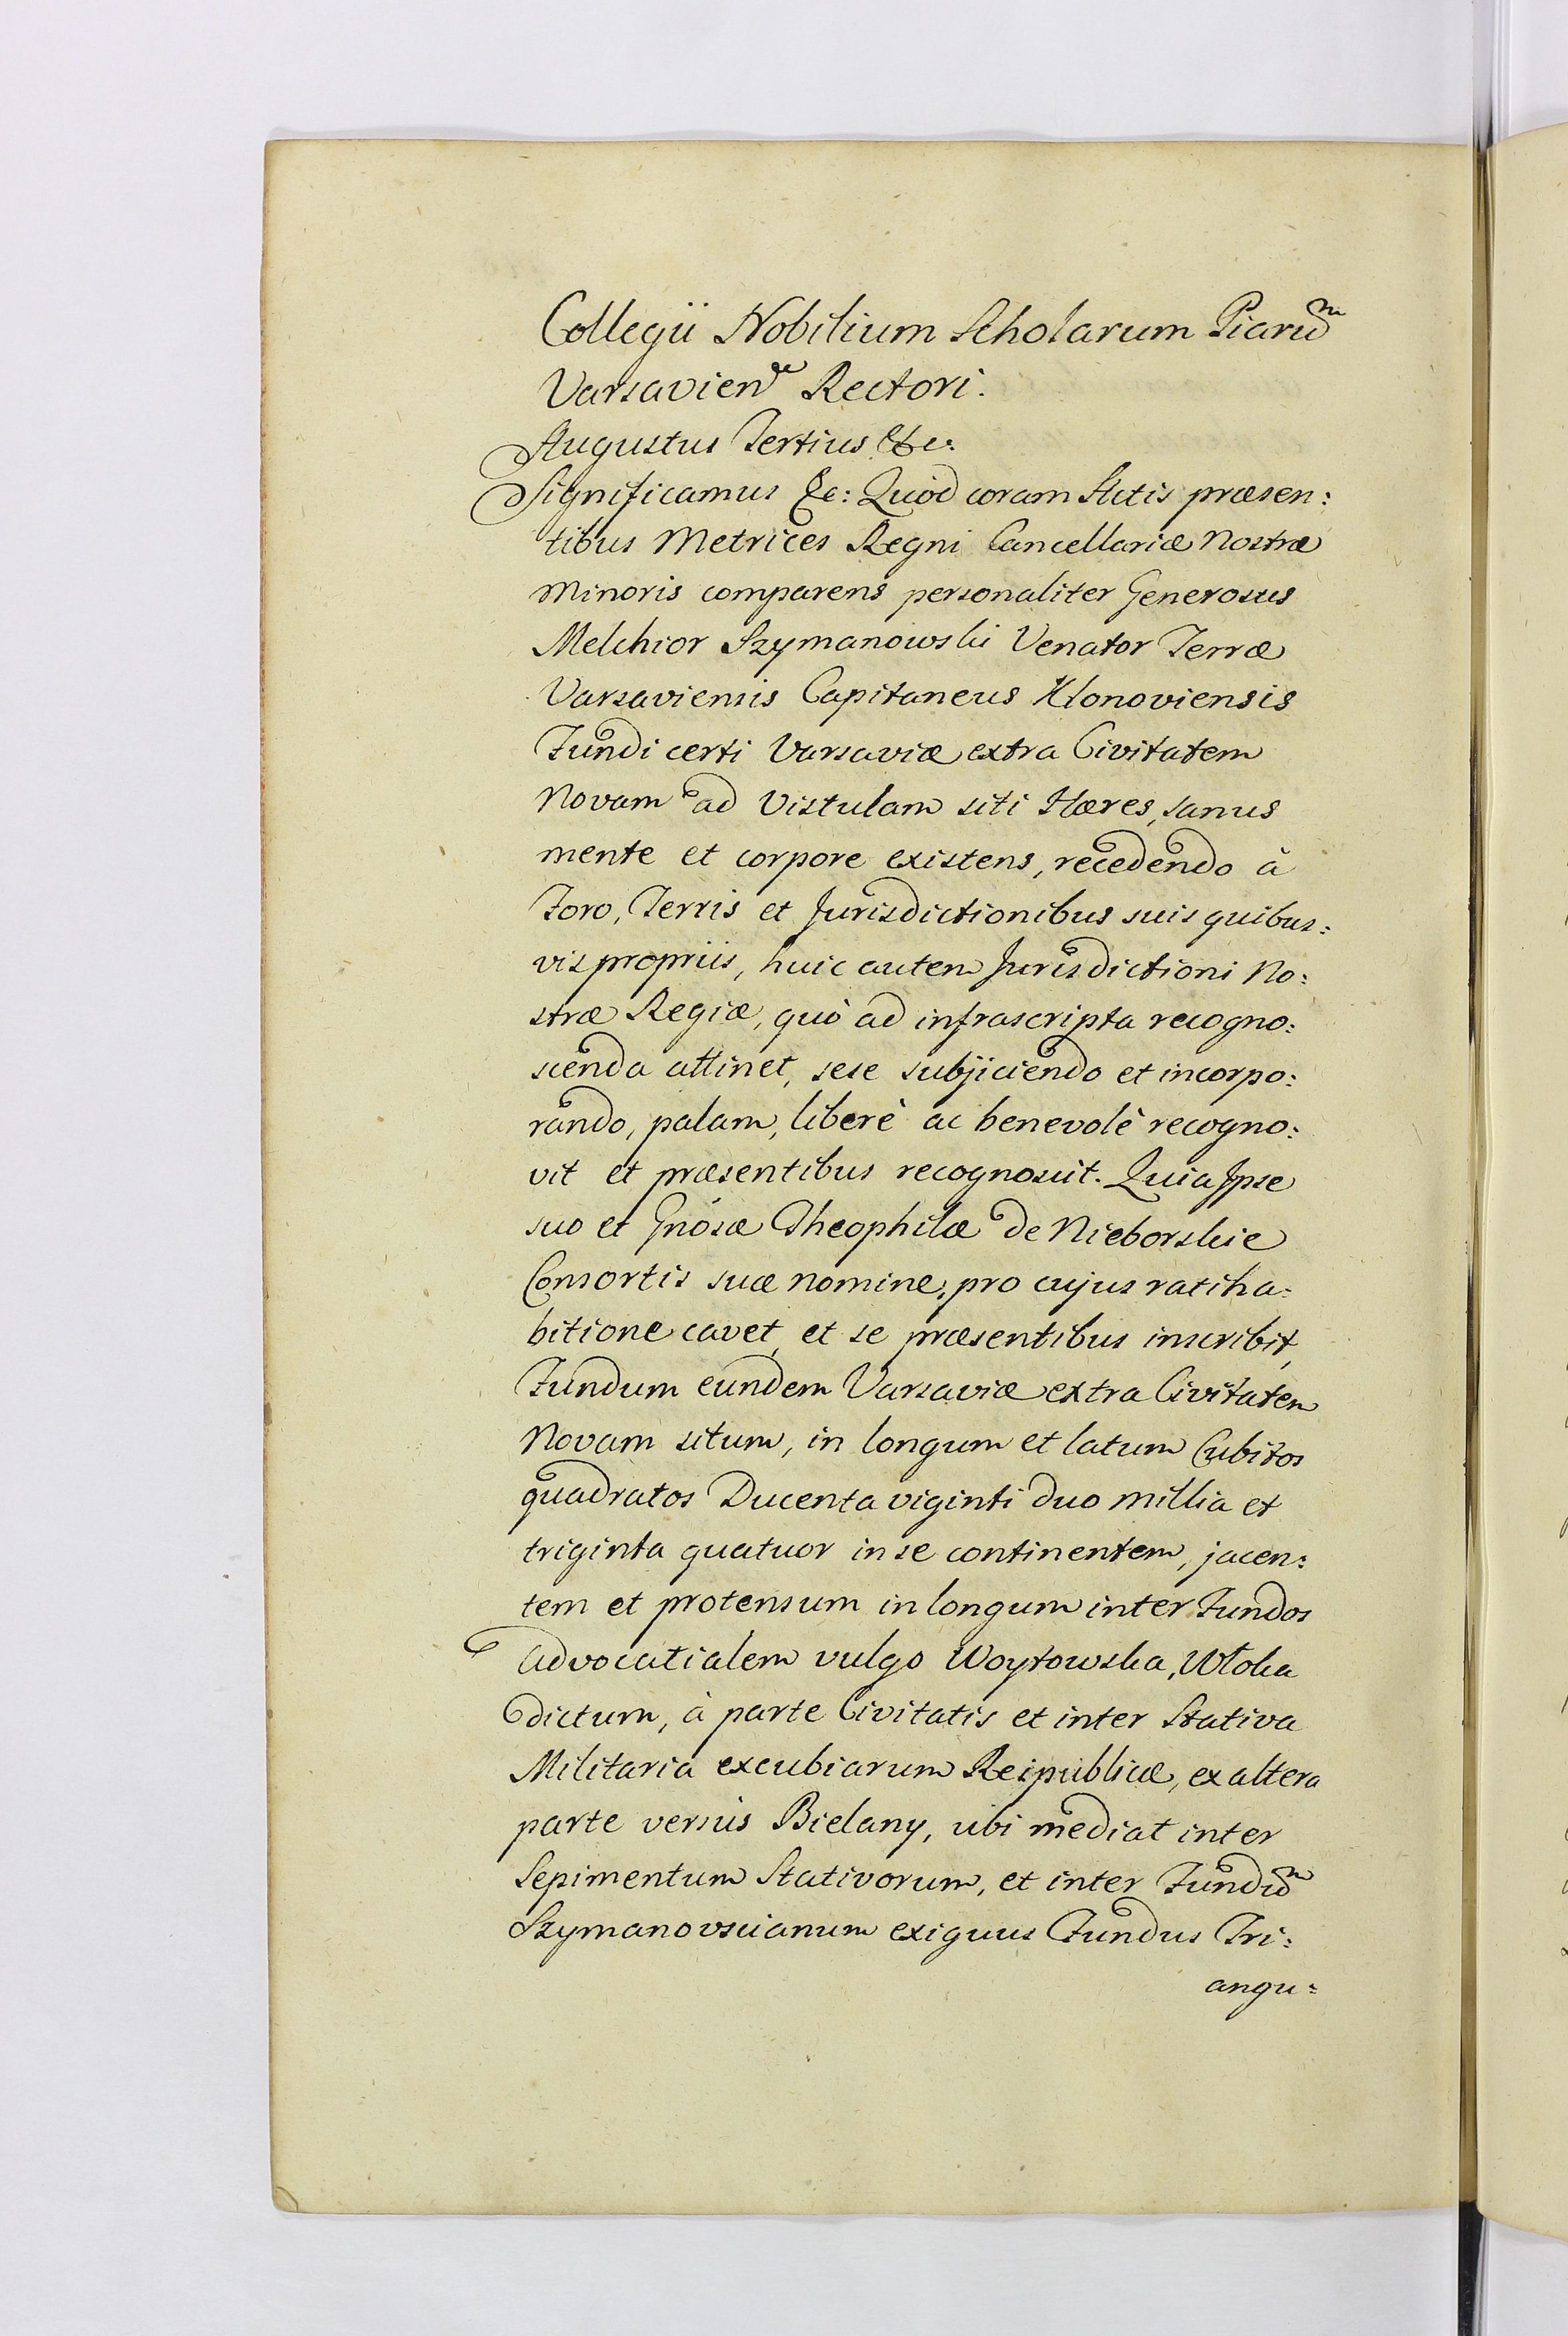 Collegii Nobilium Scholarum Piarũm
Varsavienᵉ Rectori.
Augustus Tertius &c.
Significamus &c: Quòd coram Actis præsen:
tibus Metrices Regni Cancellariæ Nostræ
Minoris comparens personaliter Generosus
Melchior Szymanowski Venator Terræ
Varsaviensis Capitaneus Klonoviensis
Fundi certi Varsaviæ extra Civitatem
Novam ad Vistulam siti Hæres, sanus
mente et corpore existens, recedendo à
Foro, Terris et Jurisdictionibus suis quibus:
vis propriis, huic autem Jurisdictioni No:
stræ Regiæ, quò ad infrascripta recogno:
scenda attinet, sese subjiciendo et incorpo:
rando, palam, liberè ac benevolè recogno:
vit et præsentibus recognoscit. Quia Ipse
suo et Gnosæ Theophilæ de Nieborskie
Consortis suæ nomine, pro cujus ratiha:
bitione cavet, et se præsentibus inscribit,
Fundum eundem Varsaviæ extra Civitatem
Novam situm, in longum et latum Cubitos
quadratos Ducenta viginti duo millia et
triginta quatuor in se continentem, jacen:
tem et protensum in longum inter Fundos
Advocatialem vulgo Woytowska, Włoka
dictum, à parte Civitatis et inter Stativa
Militaria excubiarum Reipublicæ, ex altera
parte versùs Bielany, ubi mediat inter
Sepimentum Stativorum, et inter Fundũm
Szymanovscianum exiguus Fundus Tri:
angu: